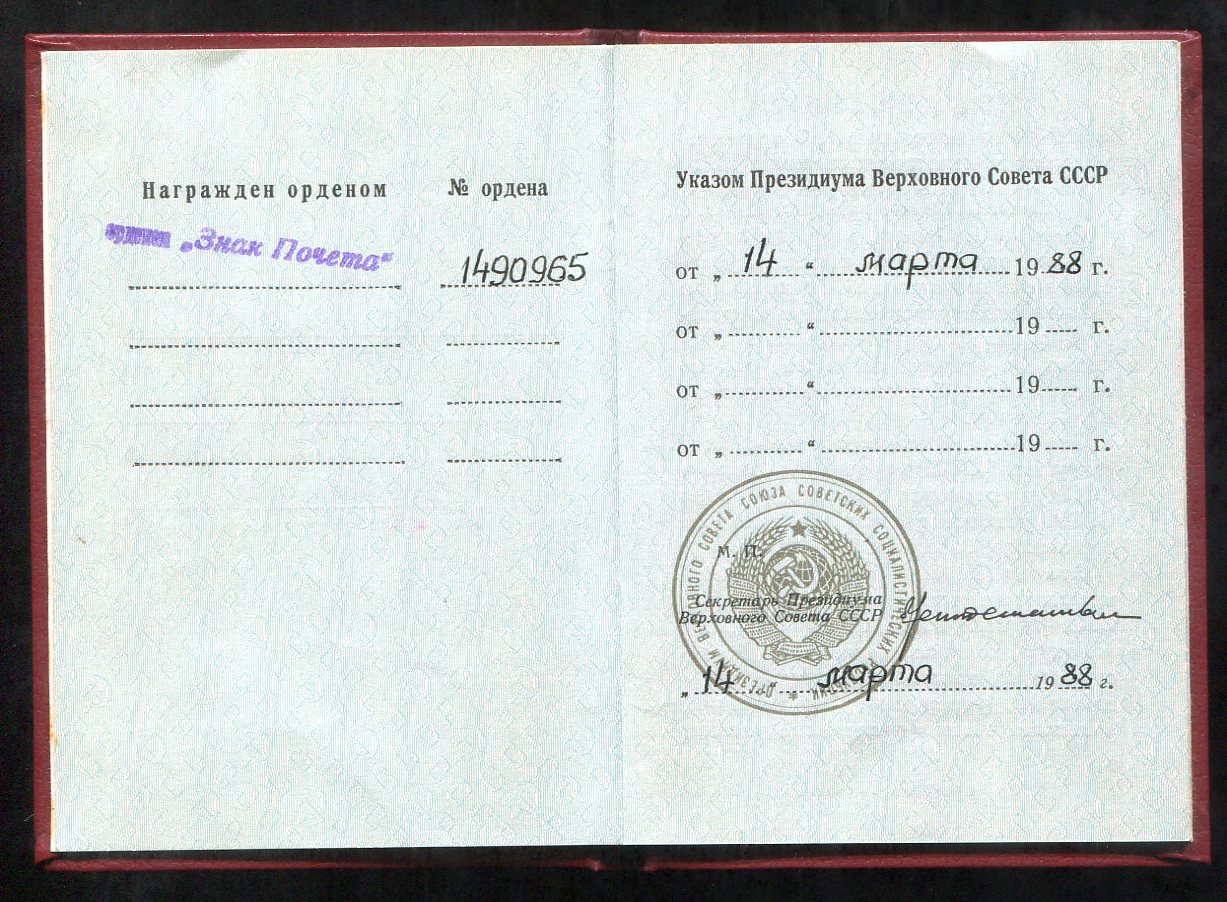 Награжден орденом
№ ордена
„Знак Почета“
1490965
Указом Президиума Верховного Совета СССР
от „ 14 “ марта 1988 г.
от „ “ 19 г.
от „ “ 19 г.
от „ “ 19 г.
ПРЕЗИДИУМ ВЕРХОВНОГО СОВЕТА СОЮЗА СОВЕТСКИХ СОЦИАЛИСТИЧЕСКИХ РЕСПУБЛИК
М. П.
Секретарь Президиума
Верховного Совета СССР
„ 14 марта 1988 г.